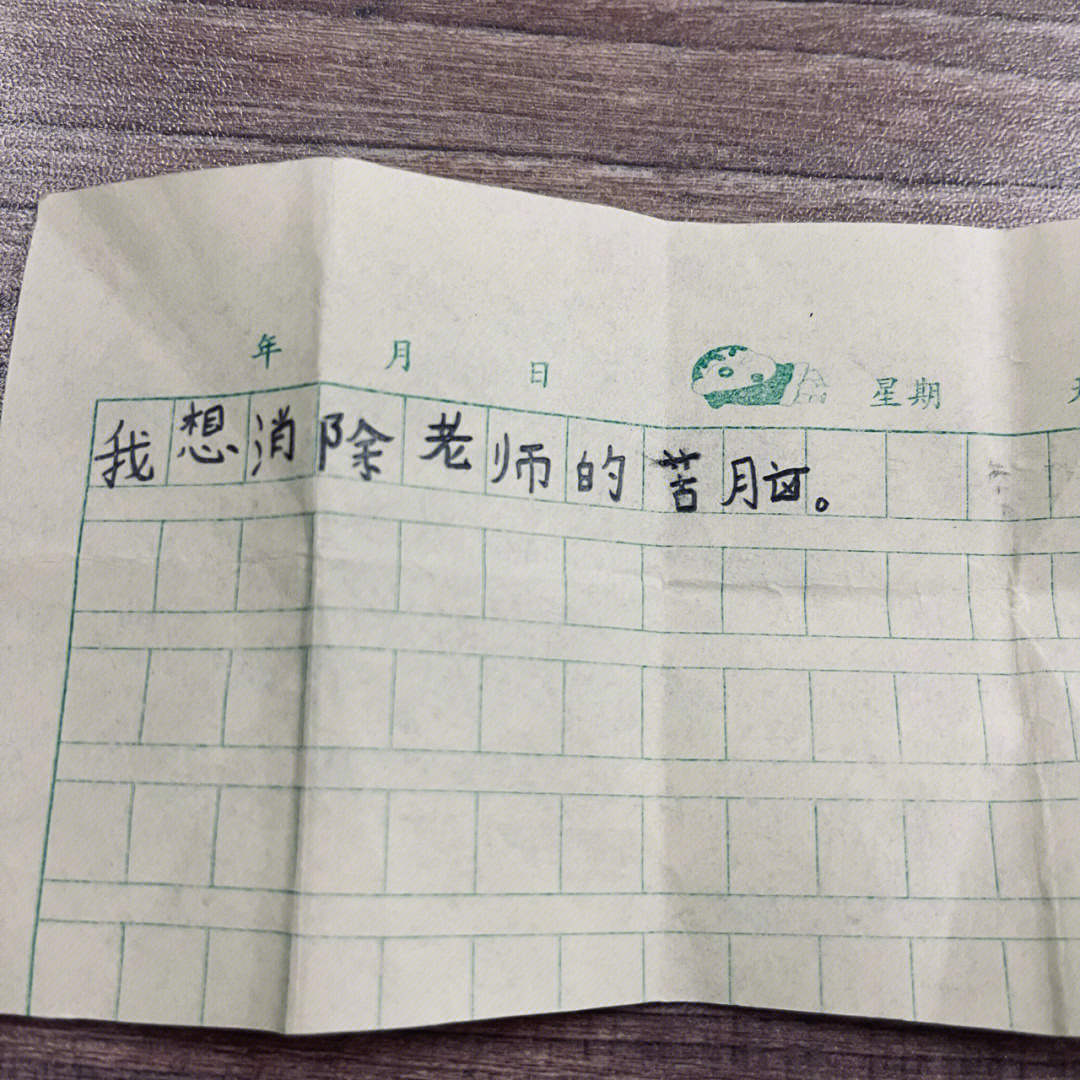 年 月 日 星期
我想消除老师的苦脑。